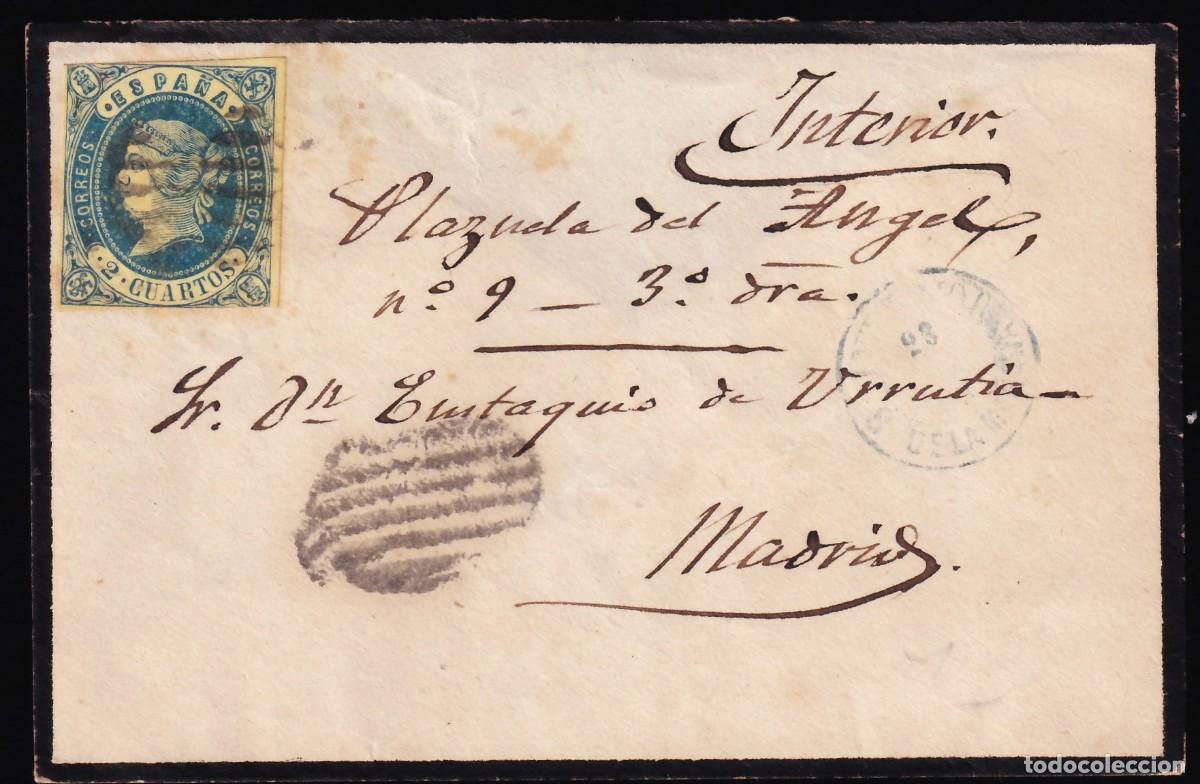 ESPAÑA
CORREOS
CORREOS
2 CUARTOS
Interior.
Plazuela del Angel,
nº 9 — 3º dra.
Sr. Dn Eustaquio de Urrutia
23
DE LA M
Madrid.
todocoleccion